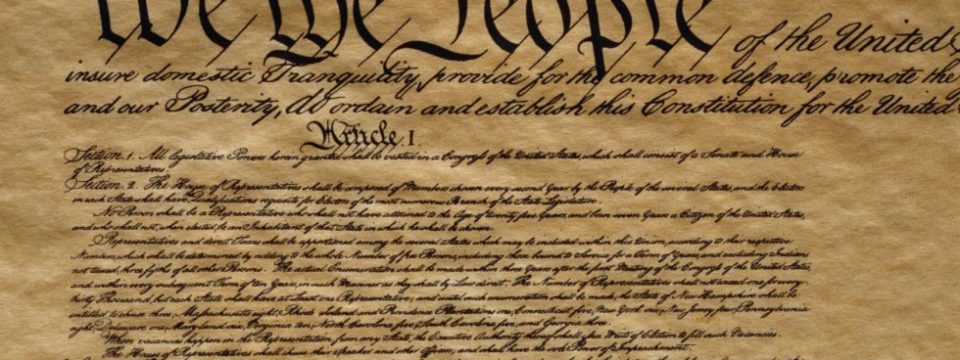 We the People of the United
insure domestic Tranquility, provide for the common defence, promote the
and our Posterity, do ordain and establish this Constitution for the United
Article I.
Section 1. All legislative Powers herein granted shall be vested in a Congress of the United States, which shall consist of a Senate and House
of Representatives.
Section 2. The House of Representatives shall be composed of Members chosen every second Year by the People of the several States, and the Electors
in each State shall have the Qualifications requisite for Electors of the most numerous Branch of the State Legislature.
No Person shall be a Representative who shall not have attained to the Age of twenty five Years, and been seven Years a Citizen of the United States,
and who shall not, when elected, be an Inhabitant of that State in which he shall be chosen.
Representatives and direct Taxes shall be apportioned among the several States which may be included within this Union, according to their respective
Numbers, which shall be determined by adding to the whole Number of free Persons, including those bound to Service for a Term of Years, and excluding Indians
not taxed, three fifths of all other Persons. The actual Enumeration shall be made within three Years after the first Meeting of the Congress of the United States,
and within every subsequent Term of ten Years, in such Manner as they shall by Law direct. The Number of Representatives shall not exceed one for every
thirty Thousand, but each State shall have at Least one Representative; and until such enumeration shall be made, the State of New Hampshire shall be
entitled to chuse three, Massachusetts eight, Rhode Island and Providence Plantations one, Connecticut five, New York six, New Jersey four, Pennsylvania
eight, Delaware one, Maryland six, Virginia ten, North Carolina five, South Carolina five, and Georgia three.
When vacancies happen in the Representation from any State, the Executive Authority thereof shall issue Writs of Election to fill such Vacancies.
The House of Representatives shall chuse their Speaker and other Officers; and shall have the sole Power of Impeachment.